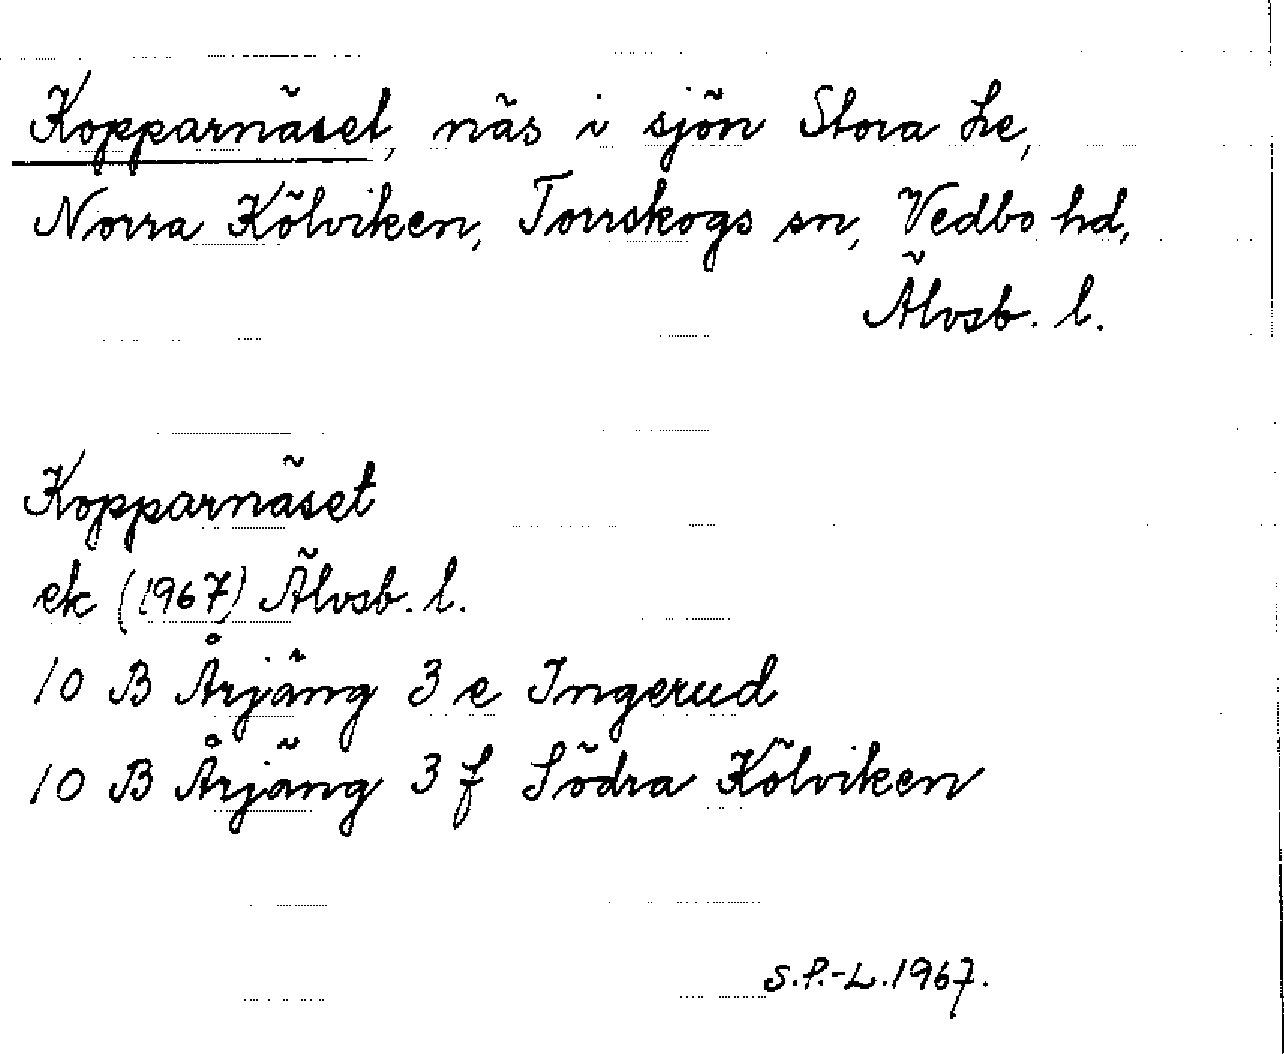 Kopparnäset, näs i sjön Stora Le,
Norra Kölviken, Torrskogs sn, Vedbo hd,
Älvsb. l.
Kopparnäset
ek (1967) Älvsb. l.
10 B Årjäng 3 e Ingerud
10 B Årjäng 3 f Södra Kölviken
S.P.-L. 1967.